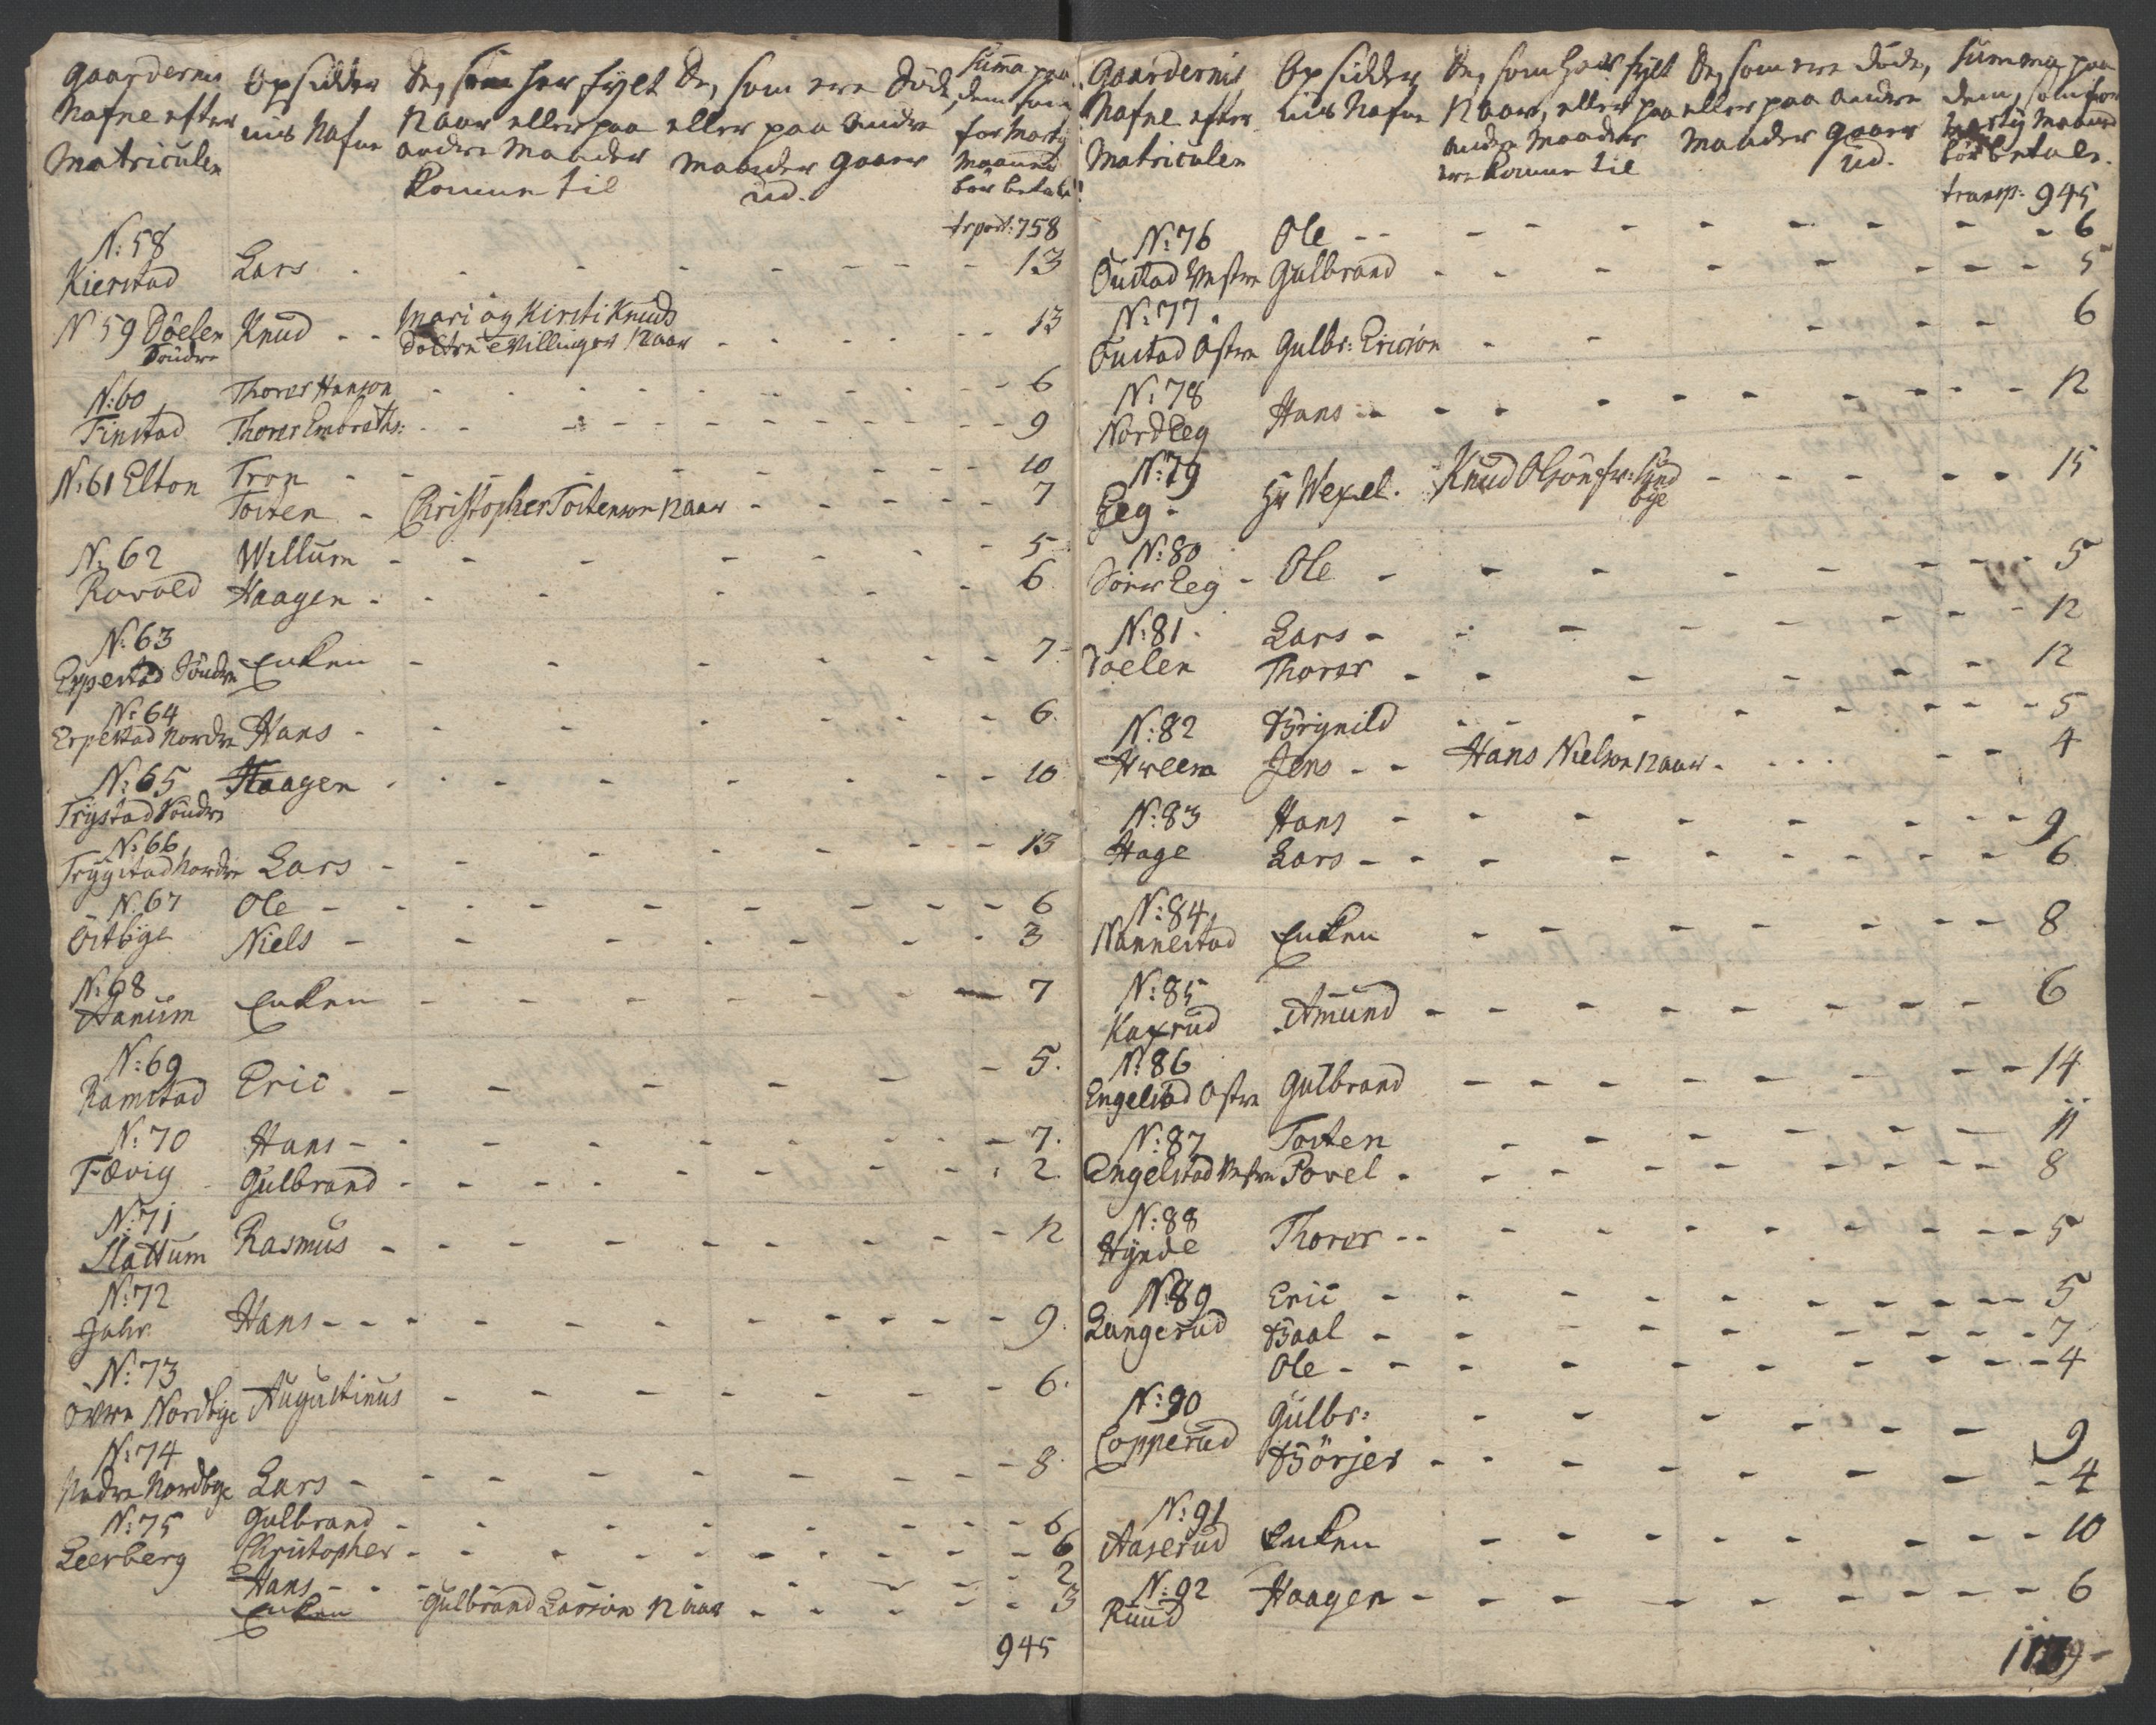 Gaardernis Nafne efter Matriculen | Opsidder nis Nafne | De, som har fylt 12 aar eller paa andre Maader komne til | De, som ere döde, eller paa andre Maader gaaer ud. | Summa paa dem som for Martij Maaned bör betale
trport: 758
N: 58 Kierstad | Lars - - - 13
N 59 Döelen Söndre | Knud - - | Mari og Kirsti Knuds Döttre tvillinger 12 aar - - - 13
N: 60 Finstad | Thorer Hanson - - - 6
Thorer Embrethz: - - - 9
N: 61 Elton | Tron - - - 10
Tosten - | Christopher Tostenson 12 aar - - - 7
N: 62 Rovold | Willum - - - 5
Haagen - - - 6
N: 63 Erpestad Söndre | Enken - - - 7
N: 64 Erpestad Nordre | Hans - - - 6
N: 65 Trystad Söndre | Haagen - - - 10
N: 66 Trygstad Nordre | Lars - - - 13
N: 67 Östbye | Ole - - - 6
Niels - - - 3
N: 68 Hanum | Enken - - - 7
N: 69 Ramstad | Eric - - - 5
N: 70 Fævig | Hans - - - 7
Gulbrand - - - 2
N: 71 Slattum | Rasmus - - - 12
N: 72 Jahr | Hans - - - 9
N: 73 Övre Nordbye | Augustinus - - - 6
N: 74 Nedre Nordbye | Lars - - - 8
N: 75 Leerberg | Gulbrand - - - 6
Christopher - - - 6
Hans - - - 2
Enken | Gulbrand Larson 12 aar - - - 3
945
Gaardernis Nafne efter Matriculen | Opsidder nis Nafne | De, som haver fylt 12 aar, eller paa andre Maader ere komne til | De, som ere döde, eller paa andre Maader gaaer ud. | Summa paa dem, som for Martij Maaned bör betale.
transp: 945
N: 76 Oustad Vestre | Ole - - - 6
Gulbrand - - - 5
N: 77 Oustad Östre | Gulbr: Ericsön - - - 6
N: 78 Nord Eeg | Hans - - - 12
N: 79 Eeg - | Hr Wexel. | Knud Olsön fr: Sundbye - - - 15
N: 80 Sörer Eeg - | Ole - - - 5
N: 81 Doelen | Lars - - - 12
Thorer - - - 12
N: 82 Hweem | Brynild - - - 5
Jens - - | Hans Nielson 12 aar - - - 4
N: 83 Hage | Hans - - - 9
Lars - - - 6
N: 84 Nannestad | Enken - - - 8
N: 85 Kaxrud | Amund - - - 6
N: 86 Engelstad Östre | Gulbrand - - - 14
N: 87 Engelstad Vestre | Tosten - - - 11
Povel - - - 8
N: 88 Hynde | Thorer - - - 5
N: 89 Langerud | Eric - - - 5
Baal - - - 7
Ole - - - 4
N: 90 Copperud | Gulbr: - - - 9
Börjer - - - 4
N: 91 Aaserud | Enken - - - 10
N: 92 Ruud | Haagen - - - 6